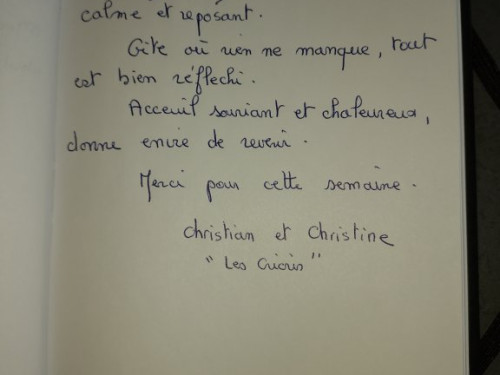 calme et reposant.
Gîte où rien ne manque, tout
est bien réflechi.
Acceuil souriant et chaleureux,
donne envie de revenir.
Merci pour cette semaine.
Christian et Christine
"Les Cricris"